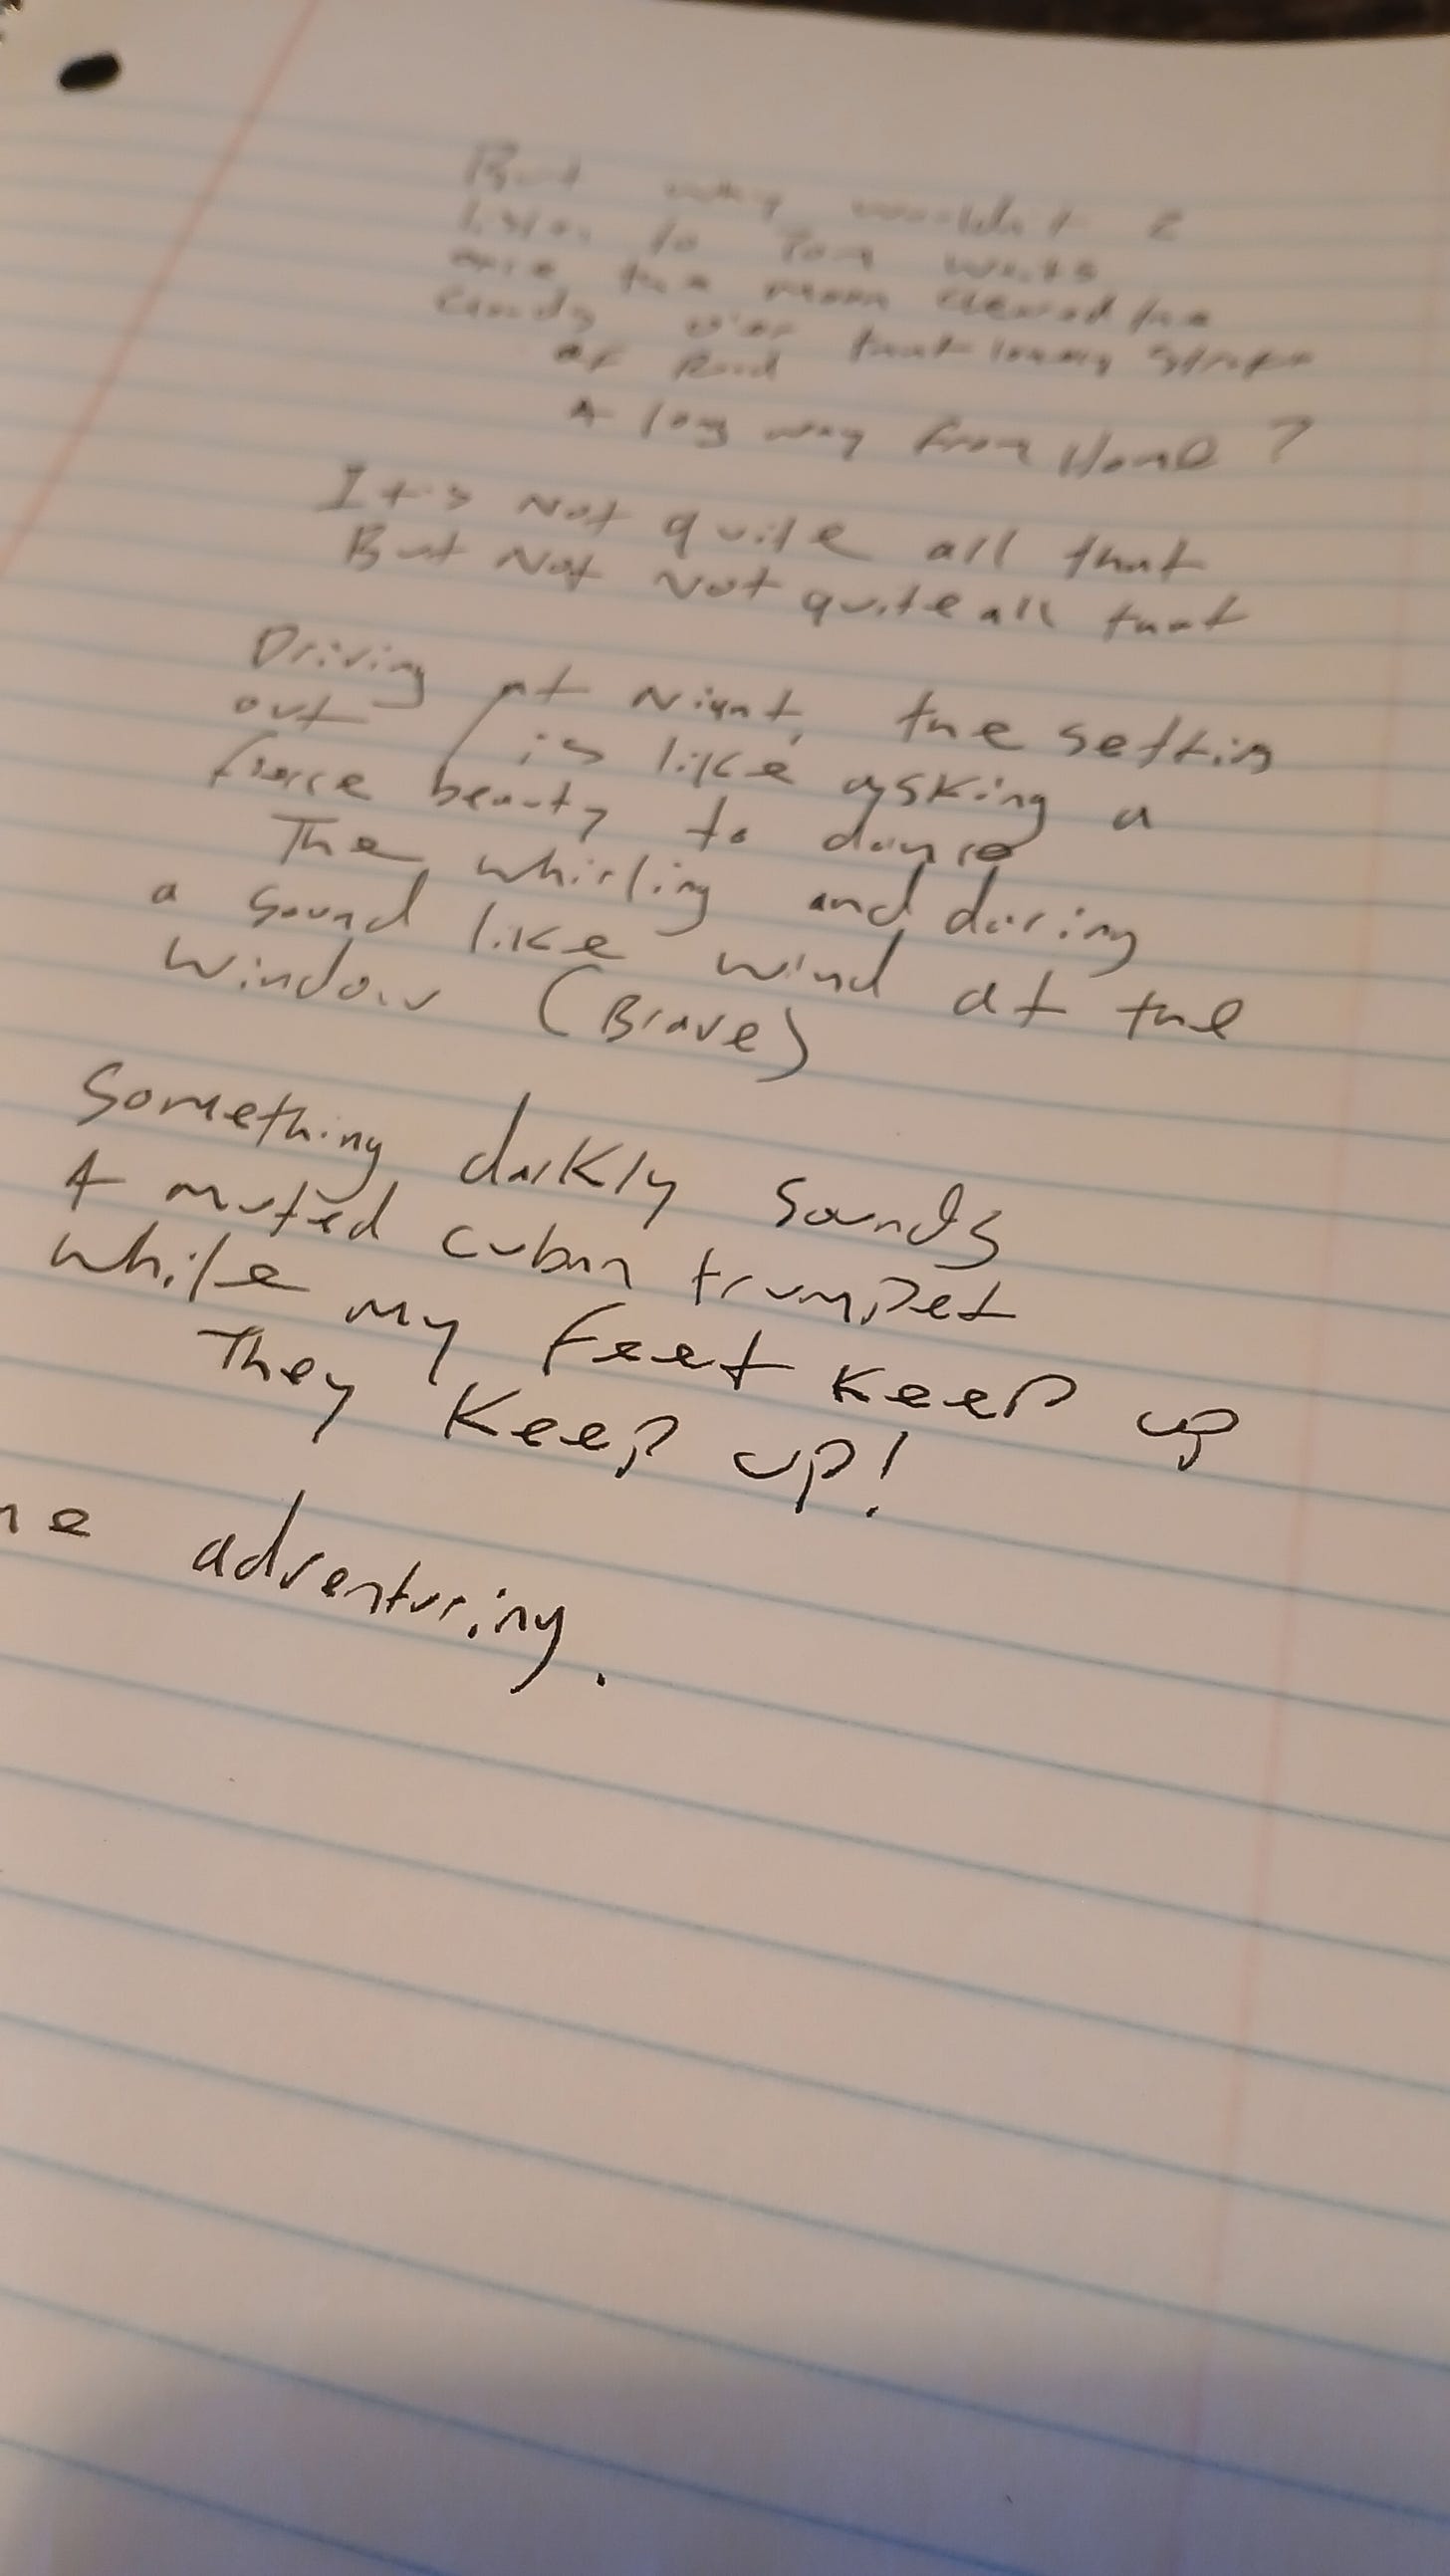 But why wouldn't I
listen to Tom Waits
once the moon cleared the
clouds o'er that lonely stretch
of Road
A long way from Home?
It's Not quite all that
But Not Not quite all that
Driving at Night, the setting
out is like asking a
fierce beauty to dance
The whirling and daring
a sound like wind at the
window (Brave)
Something darkly sounds
A muted cuban trumpet
while my feet keep up
They Keep up!
adventuring.